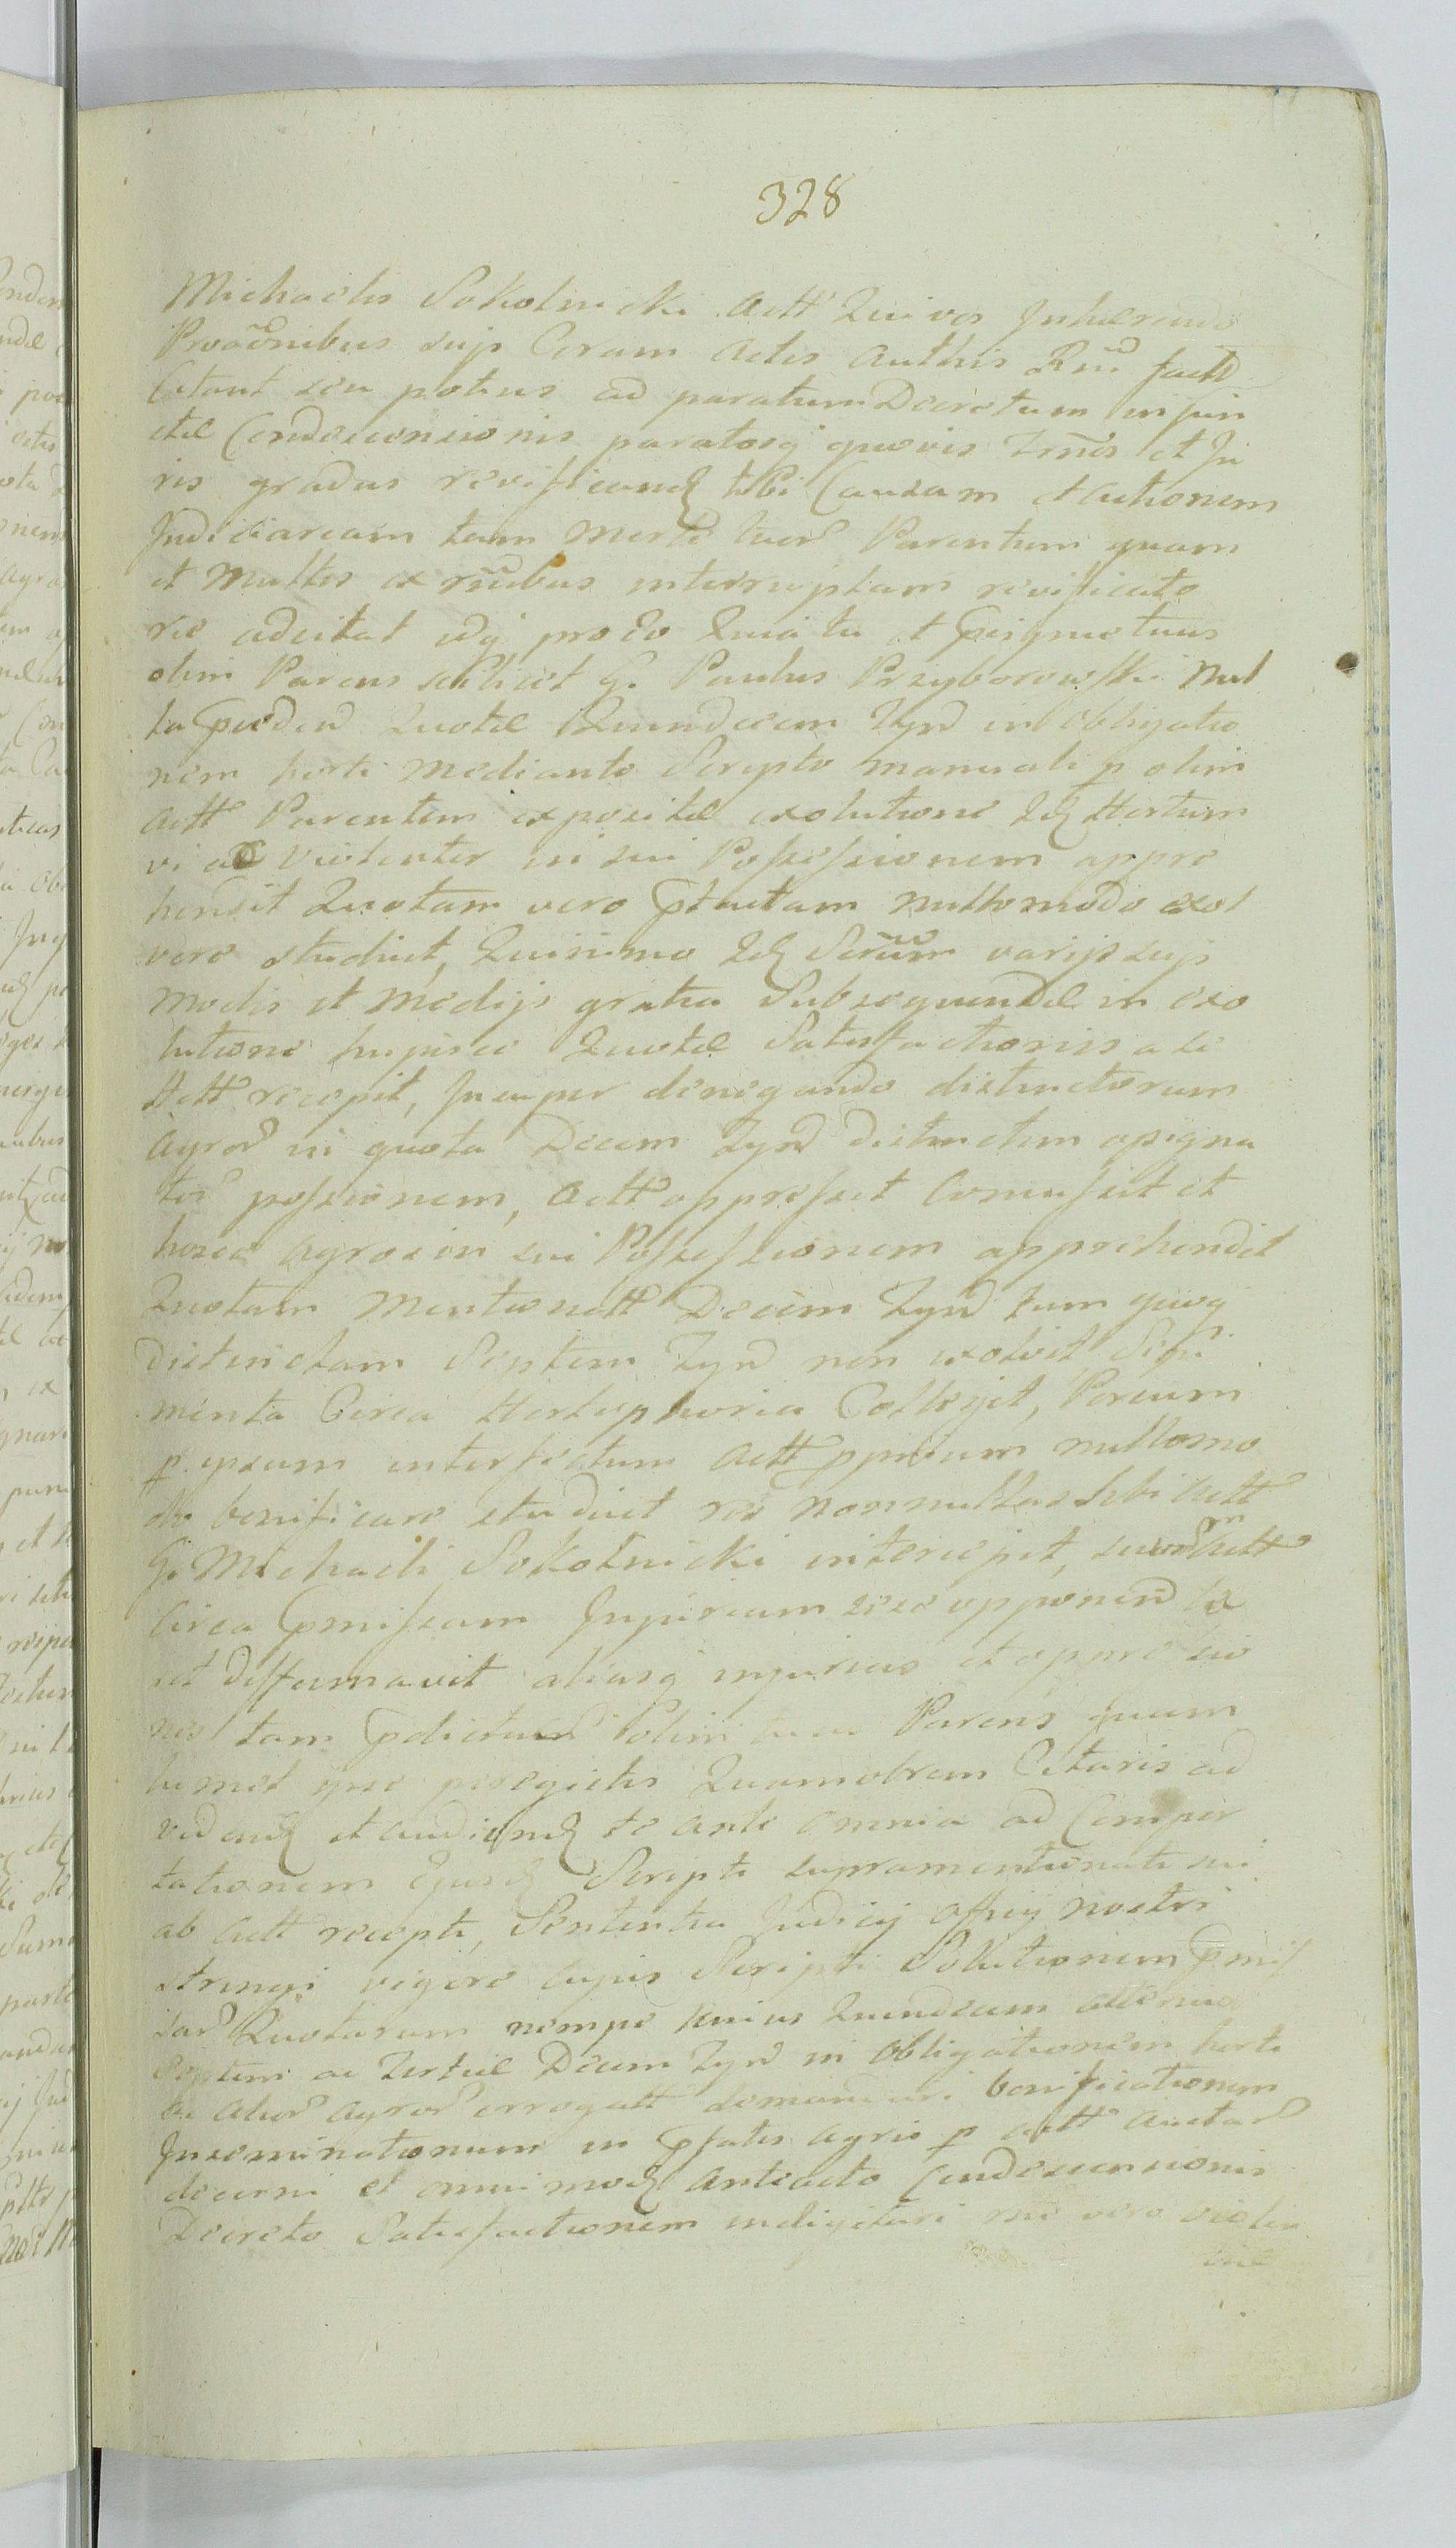 328
Michaelis Sokolnicki Actt Qui vos Inhærendo
Proãonibus suis Coram Actis Authis Rñd factt
Citant seu potius ad paratum Decretum in fun
ctæ Condescensionis paratosq quovis Trños et Ju
ris gradus revificand tibi Causam et Actionem
Judiciariam tam Morte tuor Parentum quam
et Multis ex rõnibus interruptam revificato
rie adcitat idq pro eo Quia tu et Pcignotuus
olim Parens scilicet G. Paulus Przyborowski Nul
la Quotæ Quindecem Zynd in Obligatio
nem horti Mediante Scripto Manuali p olim
Actt Parentem expositæ exolutione Hortum
vi ac Violenter in sui Possessionem appre
hendit Quotam vero Ptactam nullomodo exol
vere studuit, Quinimo varijs suis
Modis et Medijs gratia Subsequendæ in exo
lutione hujusce Quotæ Satisfactionis a te
Actt recepit, Insuper denegando distinctorum
Agror in quota Decem Zynd distinctim opigna
tor possionem, Actt oppressit Concussit et
hosce Agros in sui Possessionem apprehendit
Quotam Mentionatt Decem Zynd tum quoq
distinctam Septem Zynd non exolvit, Sepi
menta Circa Hortuphoria Collegit, Porcum
p ipsum interfectum Actt pprium nullomo
do benificare studuit res nonnullas sibi Actt
G. Michaeli Sokolnicki intercepit,
Circa Pmissam Injuriam sese opponend
et diffamavit aliasq injurias et oppressio
nes tam Pdictus olim tuus Parens quam
tumet ipse peregistis Quamobrem Citaris ad
vidend et audiend te ante omnia ad Compor
tationem Ejusd Scripti supramentionati sui
ab Actt recepti, Sententia Judicij Officij nostri
stringi vigore cujus Scripti Solutionem Pmis
sar Quotarum nempe unius Quindecem alterius
Septem ac Tertiæ Decem Zynd in Obligationem horti
ac alior Agror errogatt demandari bonificationem
Inseminationum in Pfatis Agris p Actt
decerni et omnimod Anteacto Condescensionis
Decreto Satisfactionem indigitari vero violen
tiæ